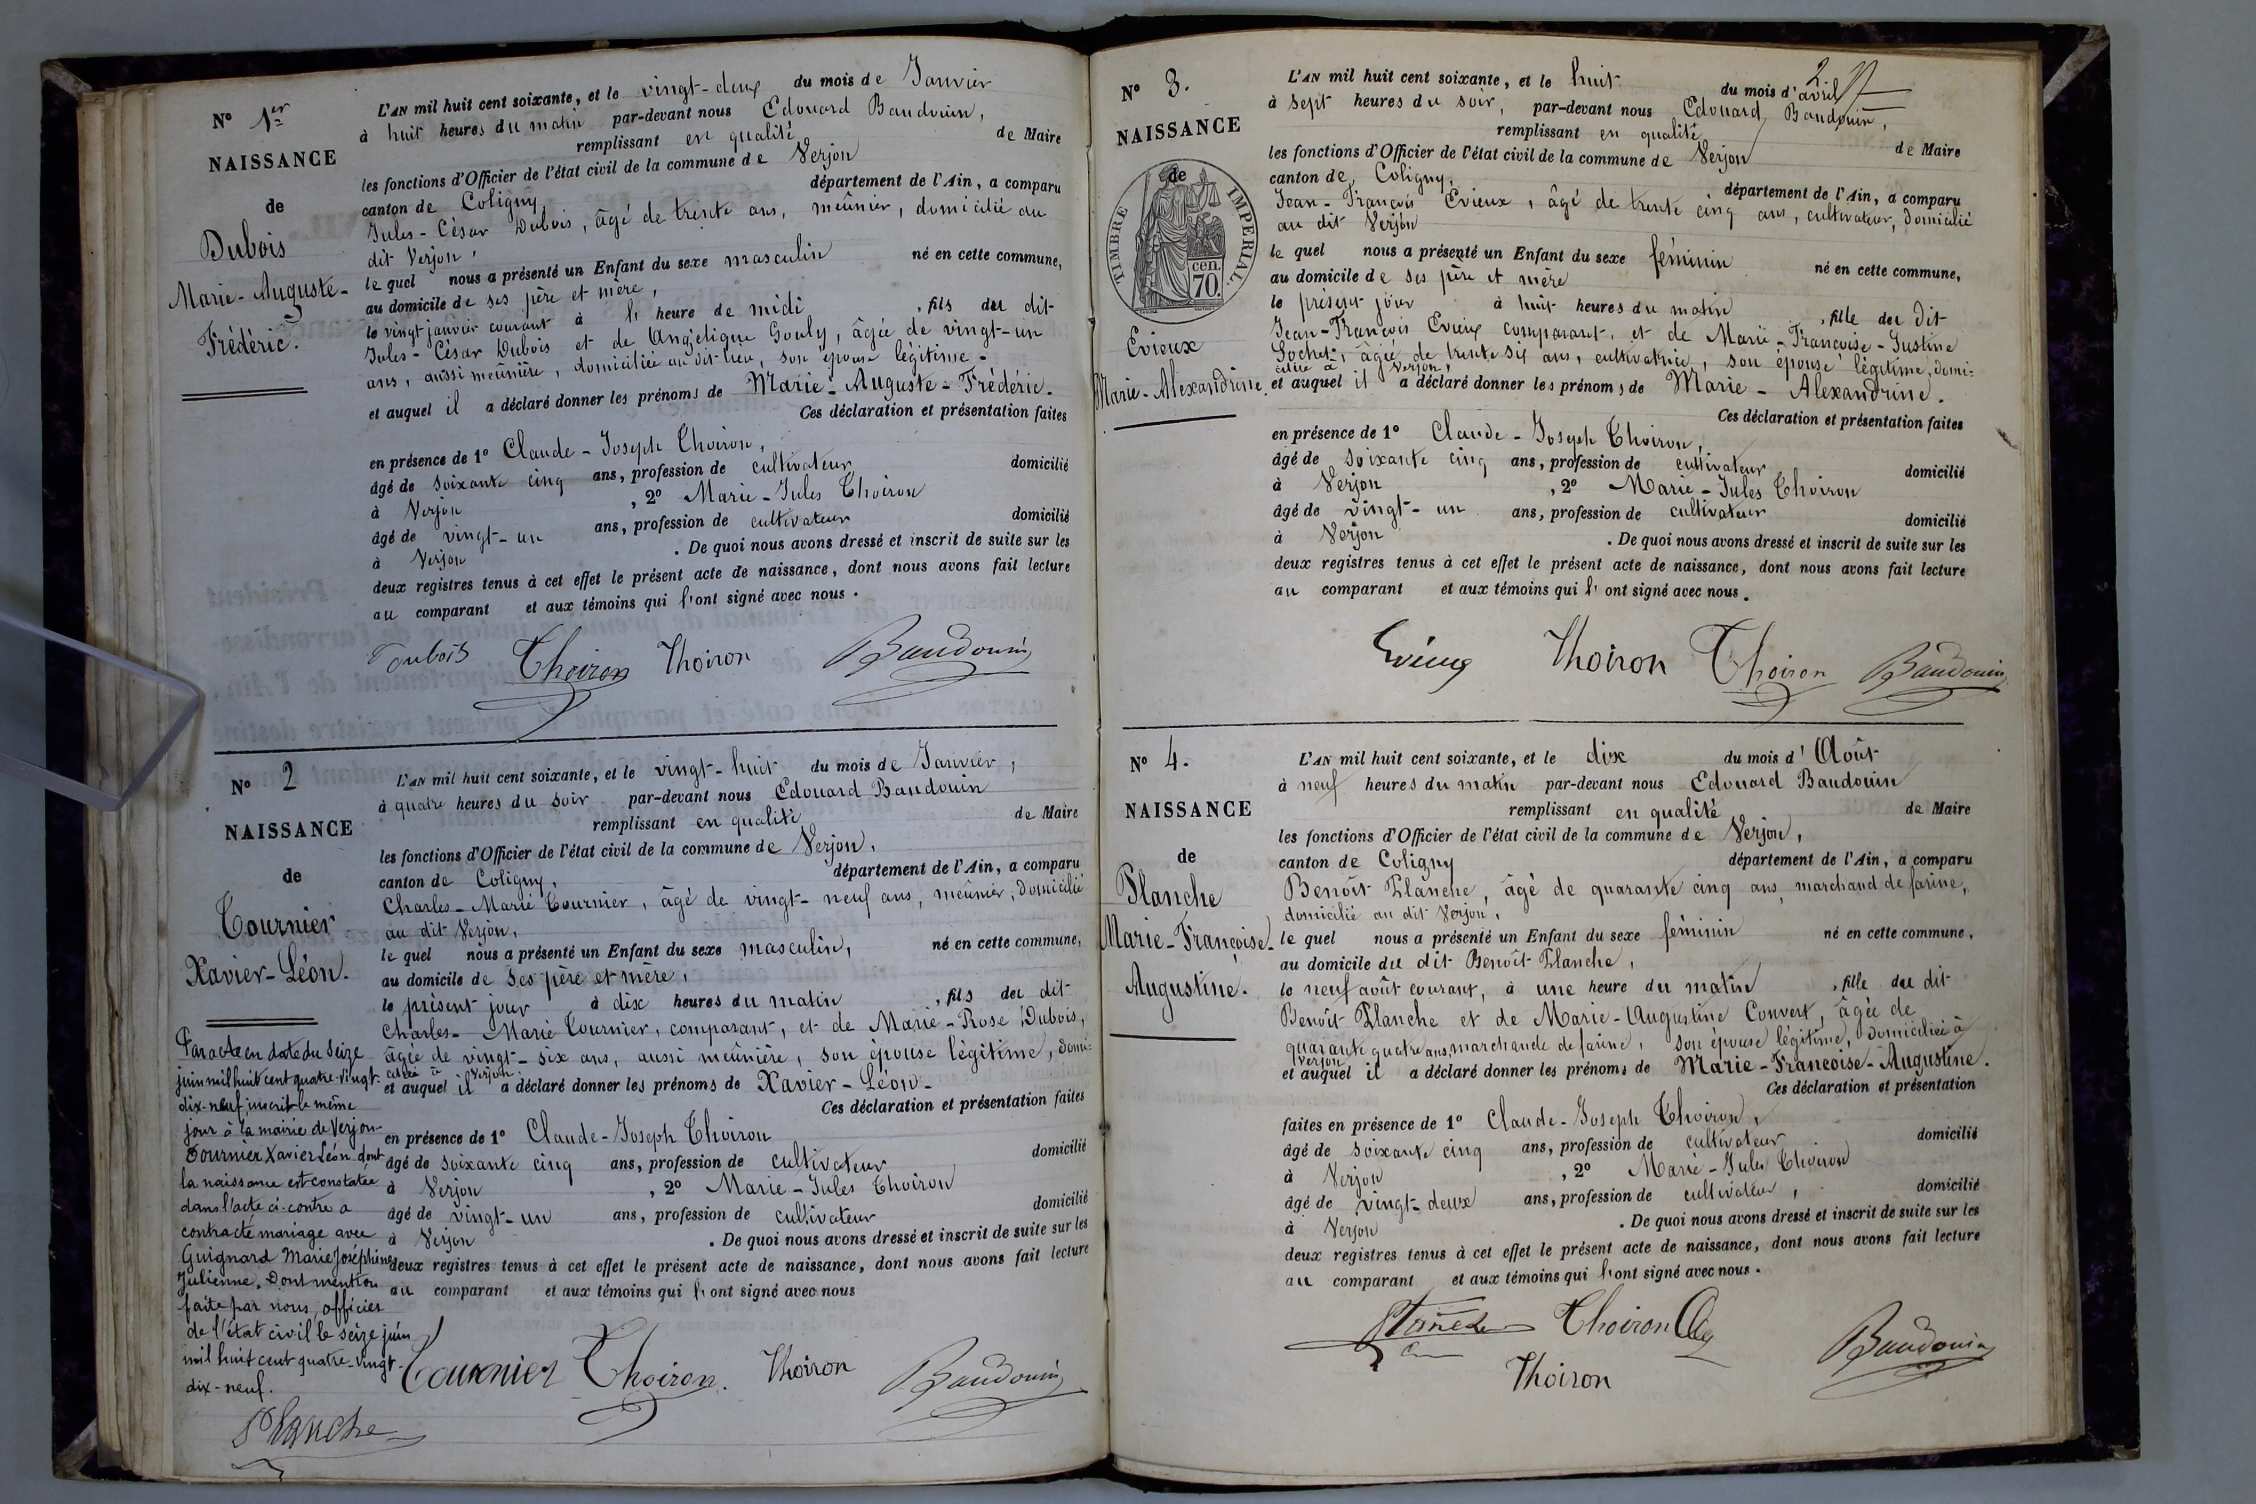 N° 1er
NAISSANCE
de
Dubois
Marie-Auguste-
Frédéric.
L'AN mil huit cent soixante, et le vingt-deux du mois de Janvier
à huit heures du matin par-devant nous Edouard Baudouin,
remplissant en qualité de Maire
les fonctions d'Officier de l'état civil de la commune de Verjon
canton de Coligny, département de l'Ain, a comparu
Jules-César Dubois, âgé de trente ans, meûnier, domicilié au
dit Verjon,
le quel nous a présenté un Enfant du sexe masculin né en cette commune,
au domicile de ses père et mère,
le vingt janvier courant à l' heure de midi , fils du dit
Jules-César Dubois et de Angélique Gouly, âgée de vingt-un
ans, aussi meûnière, domiciliée au dit lieu, son épouse légitime-
et auquel il a déclaré donner les prénoms de Marie-Auguste-Frédéric.
Ces déclaration et présentation faites
en présence de 1° Claude-Joseph Thoiron,
âgé de soixante cinq ans, profession de cultivateur domicilié
à Verjon , 2° Marie-Jules Thoiron
âgé de vingt-un ans, profession de cultivateur domicilié
à Verjon . De quoi nous avons dressé et inscrit de suite sur les
deux registres tenus à cet effet le présent acte de naissance, dont nous avons fait lecture
au comparant et aux témoins qui l'ont signé avec nous.
Dubois Thoiron Thoiron Baudouin
N° 2
NAISSANCE
de
Tournier
Xavier-Léon.
Par acte en date du seize
juin mil huit cent quatre-vingt-
dix-neuf, inscrit le même
jour à la mairie de Verjon
Tournier Xavier Léon dont
la naissance est constatée
dans l'acte ci-contre a
contracté mariage avec
Guignard Marie Joséphine
Julienne. Dont mention
faite par nous, officier
de l'état civil le seize juin
mil huit cent quatre-vingt-
dix-neuf.
Planche
L'AN mil huit cent soixante, et le vingt-huit du mois de Janvier,
à quatre heures du soir par-devant nous Edouard Baudouin
remplissant en qualité de Maire
les fonctions d'Officier de l'état civil de la commune de Verjon,
canton de Coligny, département de l'Ain, a comparu
Charles-Marie Tournier, âgé de vingt-neuf ans, meûnier, domicilié
au dit Verjon,
le quel nous a présenté un Enfant du sexe masculin, né en cette commune,
au domicile de ses père et mère,
le présent jour à dix heures du matin , fils du dit
Charles-Marie Tournier, comparant, et de Marie-Rose Dubois,
âgée de vingt-six ans, aussi meûnière, son épouse légitime, domi-
ciliée à Verjon.
et auquel il a déclaré donner les prénoms de Xavier-Léon-
Ces déclaration et présentation faites
en présence de 1° Claude-Joseph Thoiron
âgé de soixante cinq ans, profession de cultivateur domicilié
à Verjon , 2° Marie-Jules Thoiron
âgé de vingt-un ans, profession de cultivateur domicilié
à Verjon . De quoi nous avons dressé et inscrit de suite sur les
deux registres tenus à cet effet le présent acte de naissance, dont nous avons fait lecture
au comparant et aux témoins qui l'ont signé avec nous
Tournier Thoiron. Thoiron Baudouin
2
N° 3.
NAISSANCE
de
TIMBRE IMPERIAL
70 cen.
Evieux
Marie-Alexandrine.
L'AN mil huit cent soixante, et le huit du mois d'avril
à sept heures du soir, par-devant nous Edouard Baudouin,
remplissant en qualité de Maire
les fonctions d'Officier de l'état civil de la commune de Verjon
canton de Coligny, département de l'Ain, a comparu
Jean-François Evieux, âgé de trente cinq ans, cultivateur, domicilié
au dit Verjon
le quel nous a présenté un Enfant du sexe féminin né en cette commune,
au domicile de ses père et mère
le présent jour à huit heures du matin , fille du dit
Jean-François Evieux comparant, et de Marie-Françoise-Justine
Sochet, âgée de trente six ans, cultivatrice, son épouse légitime, domi-
ciliée à Verjon,
et auquel il a déclaré donner les prénoms de Marie-Alexandrine.
Ces déclaration et présentation faites
en présence de 1° Claude-Joseph Thoiron,
âgé de soixante cinq ans, profession de cultivateur domicilié
à Verjon , 2° Marie-Jules Thoiron
âgé de vingt-un ans, profession de cultivateur domicilié
à Verjon . De quoi nous avons dressé et inscrit de suite sur les
deux registres tenus à cet effet le présent acte de naissance, dont nous avons fait lecture
au comparant et aux témoins qui l'ont signé avec nous.
Evieux Thoiron Thoiron Baudouin
N° 4.
NAISSANCE
de
Planche
Marie-Françoise-
Augustine.
L'AN mil huit cent soixante, et le dix du mois d'Août
à neuf heures du matin par-devant nous Edouard Baudouin
remplissant en qualité de Maire
les fonctions d'Officier de l'état civil de la commune de Verjon,
canton de Coligny département de l'Ain, a comparu
Benoît Planche, âgé de quarante cinq ans, marchand de farine,
domicilié au dit Verjon,
le quel nous a présenté un Enfant du sexe féminin né en cette commune,
au domicile du dit Benoît Planche,
le neuf août courant, à une heure du matin , fille du dit
Benoît Planche et de Marie-Augustine Convert, âgée de
quarante quatre ans, marchande de farine, son épouse légitime, domiciliée à
Verjon
et auquel il a déclaré donner les prénoms de Marie-Françoise-Augustine.
Ces déclaration et présentation
faites en présence de 1° Claude-Joseph Thoiron,
âgé de soixante cinq ans, profession de cultivateur domicilié
à Verjon , 2° Marie-Jules Thoiron
âgé de vingt-deux ans, profession de cultivateur, domicilié
à Verjon . De quoi nous avons dressé et inscrit de suite sur les
deux registres tenus à cet effet le présent acte de naissance, dont nous avons fait lecture
au comparant et aux témoins qui l'ont signé avec nous.
Planche Thoiron
Thoiron Baudouin